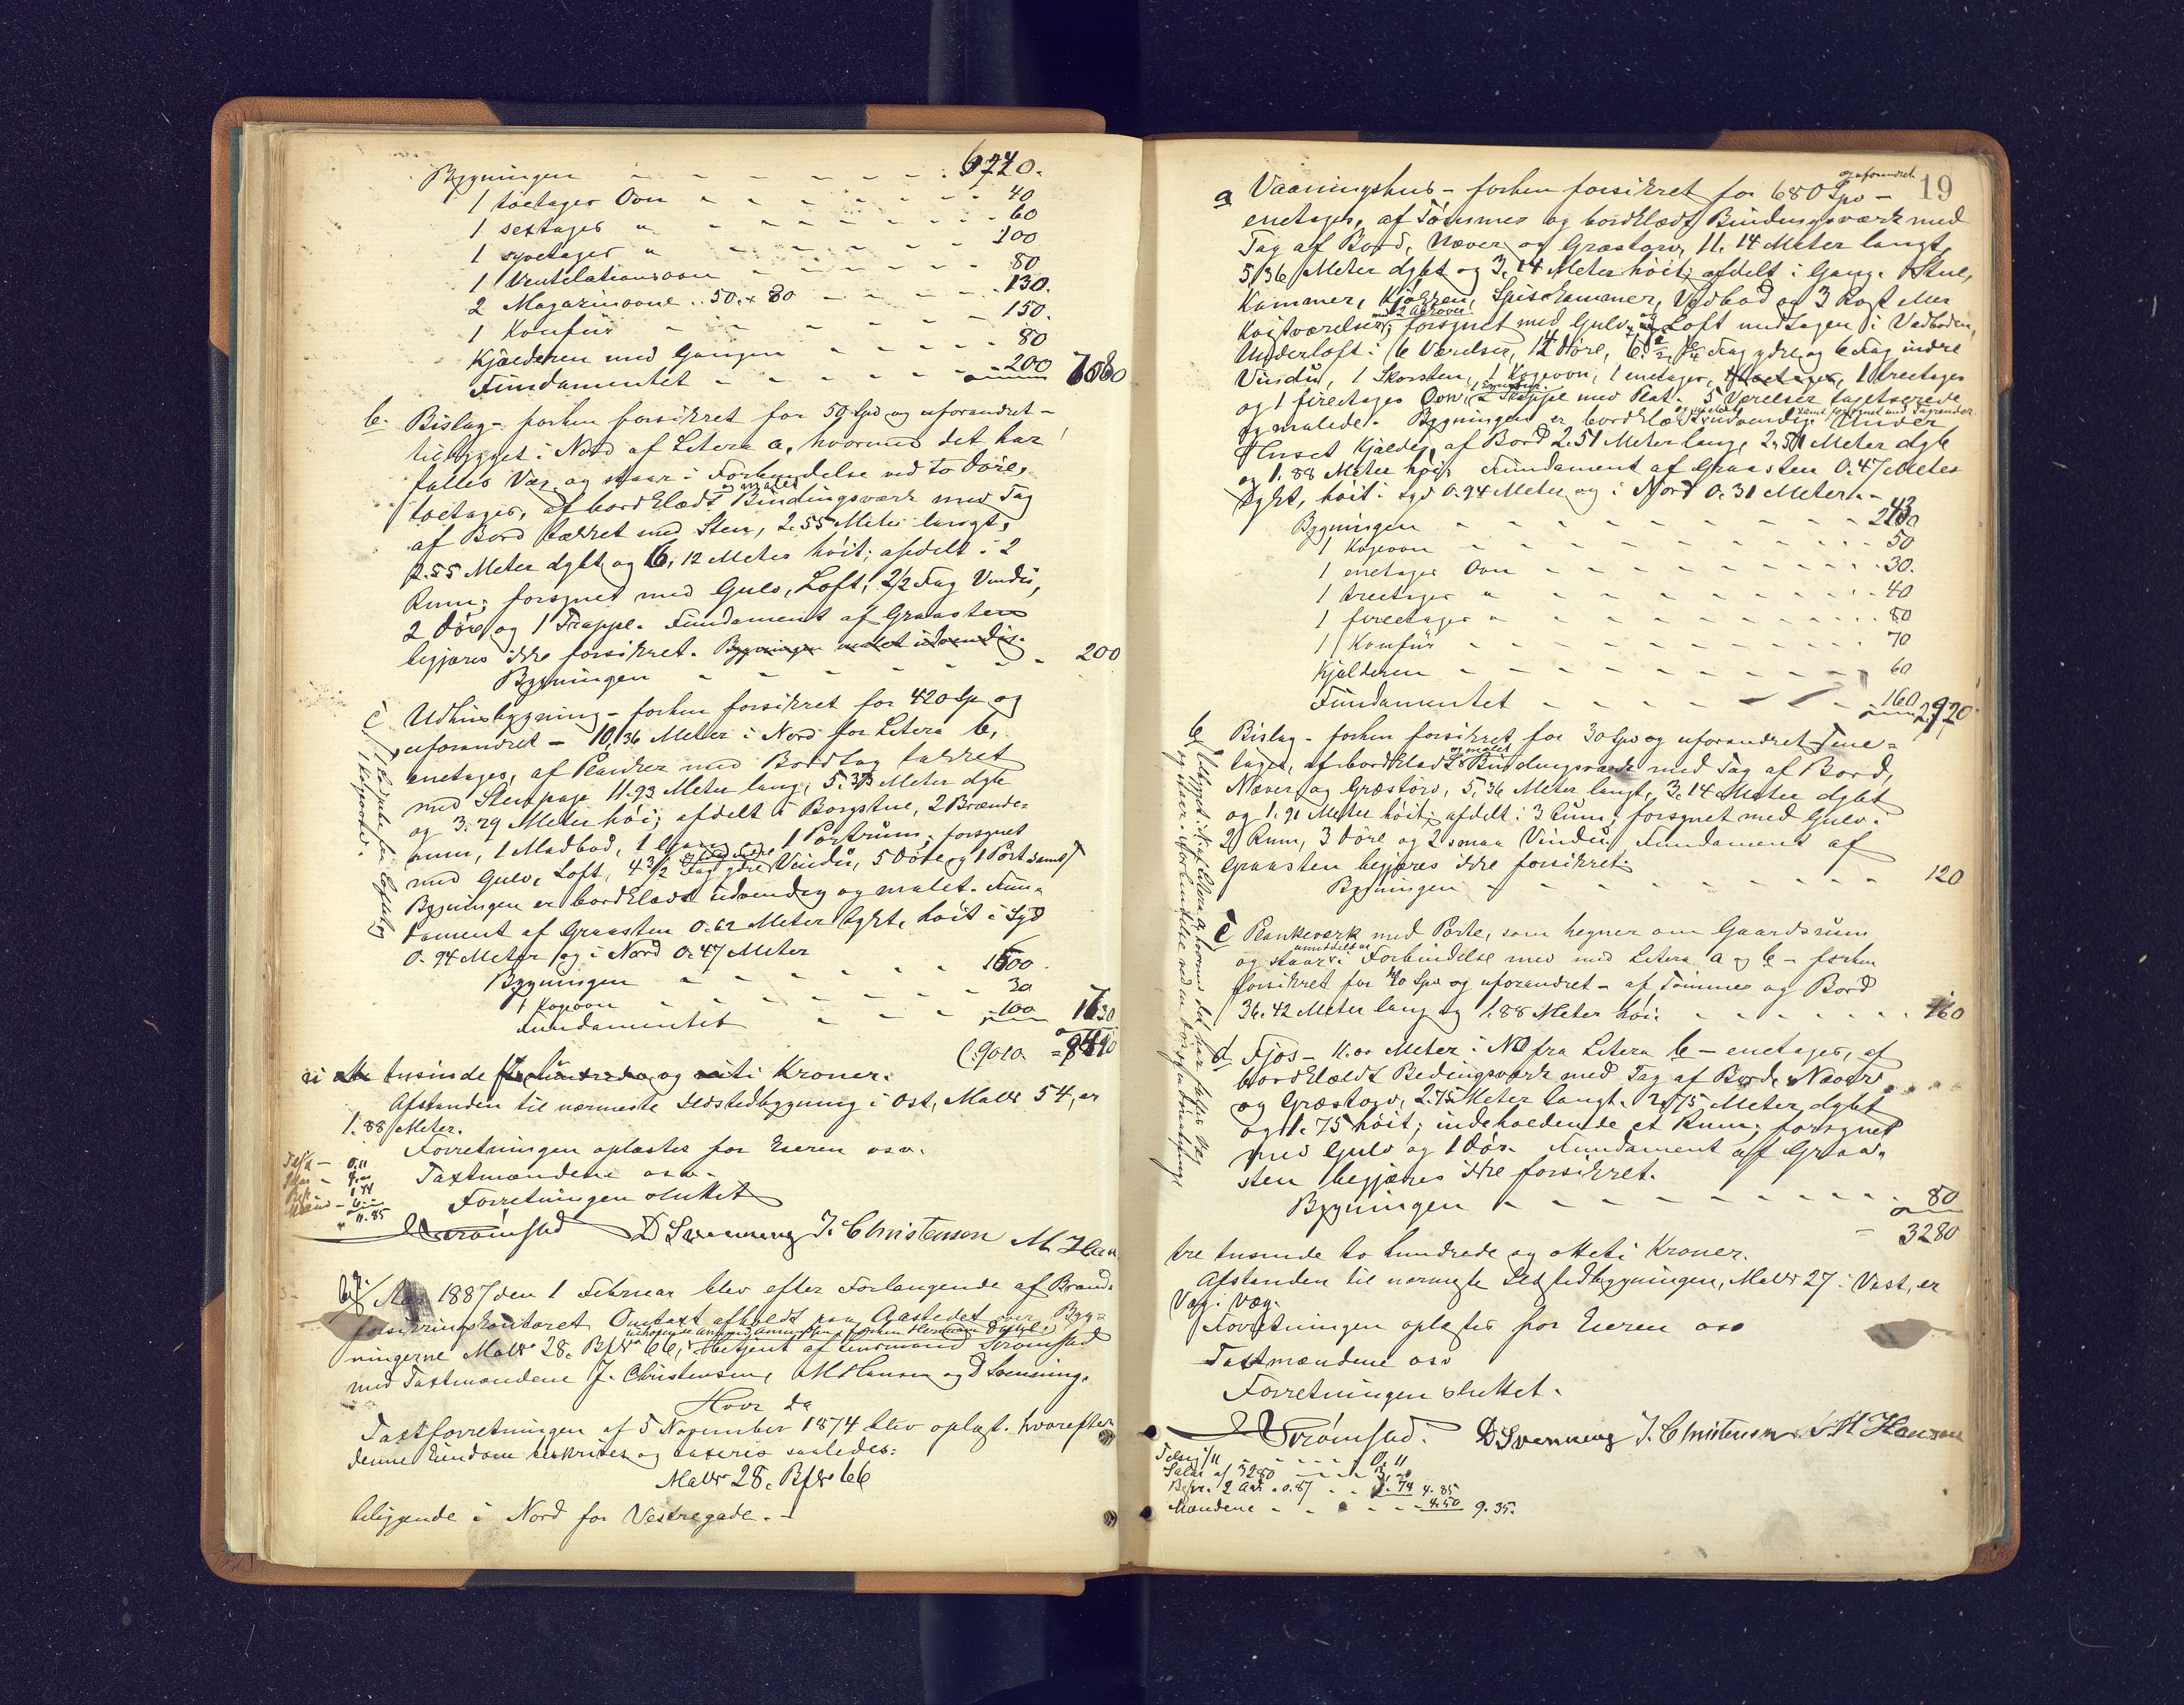 Bygningen - - - - - - - 6720.
1 toetages Ovn - - - - - - 40
1 sextages " - - - - - - 60
1 syvetages " - - - - - - 100
1 Ventilationsovn - - - - - 80
2 Magazinovne .. 50. + 80 - - - - 130.
1 Komfür - - - - - - 150.
Kjælderen med Gangen - - - - - 80
Fundamentet - - - - - - 200
b. Bislag - forhen forsikret for 50 Spd og uforandret -
tilbygget i Nord af Litera a, hvormed det har
fælles Væg og staar i Forbindelse ved to Døre,
toetages, af bordklædt og malet Bindingsværk med Tag
af Bord tækket med Sten, 2.55 Meter langt,
2.55 Meter dybt og 6,12 Meter høit; afdelt i 2
Rum; forsynet med Gulv, Loft, 2/2 Fag Vindu,
2 Døre og 1 Trappe. Fundament af Graasten
begjæres ikke forsikret. Bygningen malet udvendig.
Bygningen - - - - - - 200
c Udhusbygning - forhen forsikret for 420 Sp og
uforandret - 10,36 Meter i Nord for Litera b,
enetages, af Planker med Bordtag tækket
med Stenpap 11.93 Meter lang, 5.33 Meter dyb
og 3.29 Meter høi; afdelt i Borgstue, 2 Brænde-
rum, 1 Madbod, 1 Gang og 1 Portrum; forsynet
med Gulv, Loft, 4 3/2 Fag ydre Vindu, 5 Døre og 1 Port samt
Bygningen er bordklædt udvendig og malet. Fun-
dament af Graasten 0.62 Meter tykt, høit i Syd
0.94 Meter og i Nord 0.47 Meter
Bygningen - - - - - - 1500
1 Kogeovn - - - - - - 30
Fundamentet - - - - 100 1630
ni tusinde og ti Kroner.
Afstanden til nærmeste Ildstedbygning i Øst, MatNr 54, er
1.88 Meter.
Forretningen oplæstes for Eieren osv.
Taxtmændene osv.
Forretningen sluttet
Strømstad D Svenning J. Christensen M Han
Aar 1887 den 1 Februar blev efter Forlangende af Brand-
forsikringskontoret Omtaxt afholdt paa Aastedet over Byg-
ningerne MatNr 28. BfNr 66, betjent af Lensmand Strømstad
med Taxtmændene J. Christensen, M Hansen og D Svenning.
Hvor da
Taxtforretningen af 5 November 1874 blev oplæst. hvorefter
denne Eiendom beskrives og taxeres saaledes:
MatNr 28. BfNr 66
beliggende i Nord for Vestregade. -
19
a Vaaningshus - forhen forsikret for 680 Spd - og uforandret
enetages, af Tømmer og bordklædt Bindingsværk med
Tag af Bord, Næver og Græstorv, 11.14 Meter langt,
5,36 Meter dybt og 3.14 Meter høit; afdelt i Gang, Stue,
Kammer, Kjøkken, Spiskammer, Vedbod og 3
Kvistværelser; forsynet med Gulv og Loft undtagen i Vedboden,
Underloft i 6 Værelser, 12 Døre, Fag ydre og 6 Fag indre
Vindu, 1 Skorsten, 1 Kogeovn, 1 enetages, 1 treetages
og 1 fireetages Ovn, med Plat. 5 Værelser tapetserede
og malede. Bygningen er bordklædt udvendig. Under
Huset Kjælder, af Bord 2.51 Meter lang, 2.51 Meter dyb
og 1.88 Meter høi. Fundament af Graasten 0.47 Meter
tykt, høit i Syd 0.94 Meter og i Nord 0.31 Meter. -
Bygningen - - - - - - - 2430
1 Kogeovn - - - - - - - 50
1 enetages Ovn - - - - - - 30.
1 treetages " - - - - - - 40
1 fireetages " - - - - - - 80
1 Komfür - - - - - - - 70
Kjælderen - - - - - - - 60
Fundamentet - - - - - 160 2920
b Bislag - forhen forsikret for 30 Spd og uforandret - ene-
tages, af bordklædt og malet Bindingsværk med Tag af Bord,
Næver og Græstorv, 5.36 Meter langt, 3.14 Meter dybt
og 1.91 Meter høit; afdelt i 3 Rum; forsynet med Gulv i
2 Rum, 3 Døre og 2 smaa Vindu. Fundament af
Graasten begjæres ikke forsikret.
Bygningen - - - - - - - 120
c Plankeværk med Porte, som hegner om Gaardsrum
og staar umiddelbar i Forbindelse med Litera a og b - forhen
forsikret for 40 Spd og uforandret - af Tømmer og Bord
36.42 Meter lang og 1.88 Meter høi. - - - - - 160
d Fjøs - 11.00 Meter i NO fra Litera b - enetages, af
bordklædt Bindingsværk med Tag af Bord, Næver
og Græstorv, 2.75 Meter langt. 2.75 Meter dybt
og 1.75 høit; indeholdende et Rum; forsynet
med Gulv og 1 Dør. Fundament af Graa-
sten begjæres ikke forsikret.
Bygningen - - - - - - - 80
3280
tre tusinde to hundrede og otteti Kroner.
Afstanden til nærmeste Ildstedbygningen, MatNr 27 i Vest, er
Væg i Væg.
Forretningen oplæstes for Eieren osv
Taxtmændene osv
Forretningen sluttet.
Strømstad. D Svenning J. Christensen M Hansen
- - - - 0.11
Salær af 3280 - - - 3,00
Mændene - - - - 4.50 9.35.